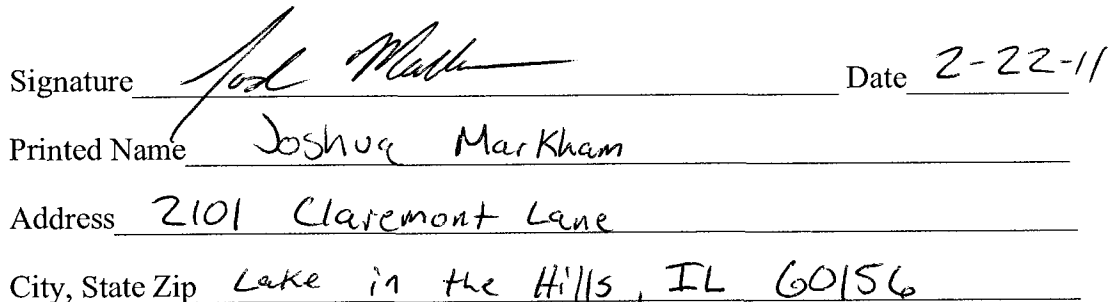 Signature Josh Date 2-22-11
Printed Name Joshua Markham
Address 2101 Claremont Lane
City, State Zip Lake in the Hills, IL 60156